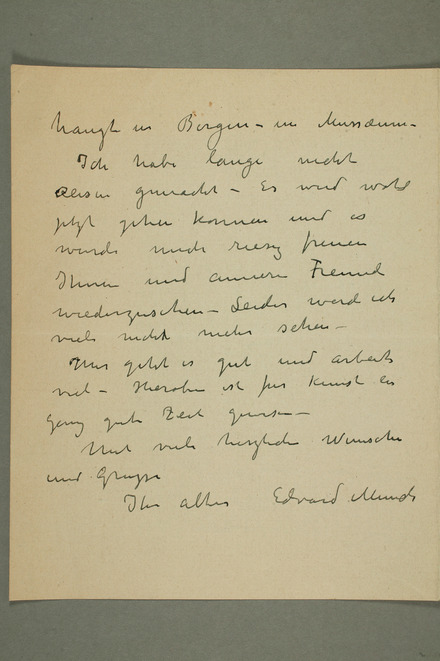 hängt in Bergen – im Mussæum –
Ich habe lange nicht
Reisen gemacht – Es wird wohl
jetzt gehen können und es
würde mich riesig freuen
Ihnen und anderen Freund
wiederzusehen – Leider werd ich
viele nicht mehr sehen –
Mir geht es gut und arbeite
viel – Hieroben ist für Kunst ein
ganz gute Zeit gewesen –
Mit viele herzliche Wünsche
und Grüsse
Ihr alter Edvard Munch